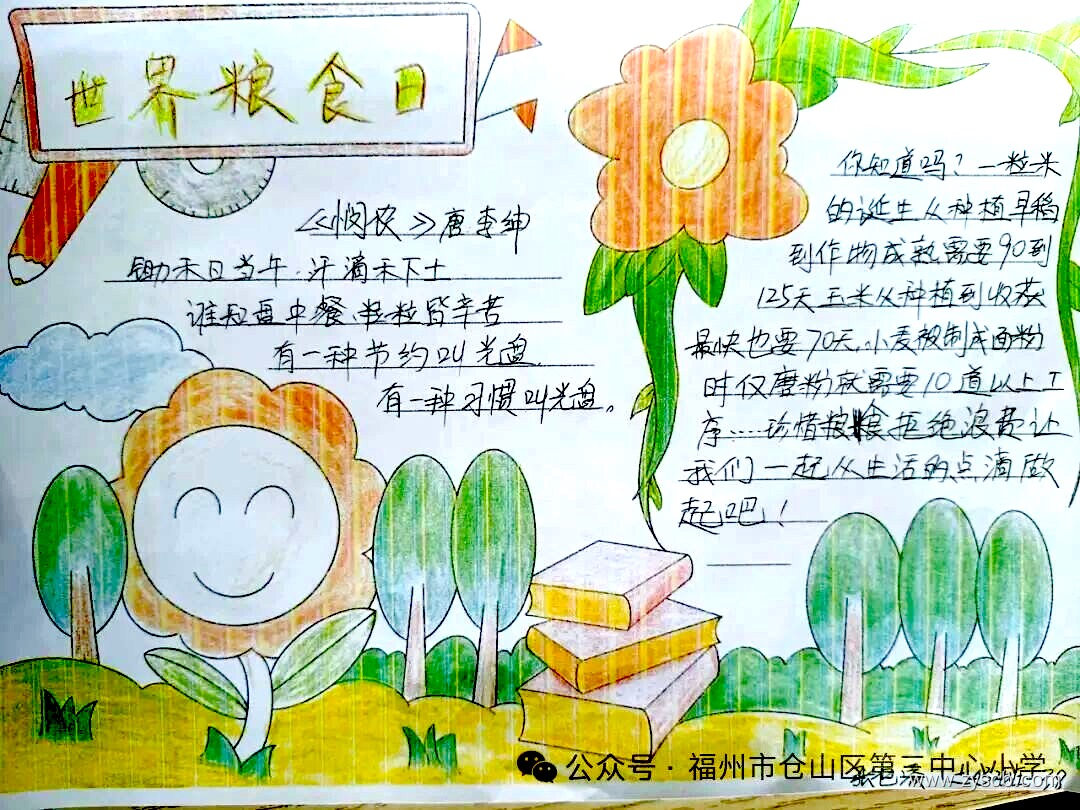 世界粮食日
《悯农》唐李绅
锄禾日当午.汗滴禾下土
谁知盘中餐、粒粒皆辛苦
有一种节约叫光盘.
有一种习惯叫光盘。
你知道吗？一粒米
的诞生从种植早稻
到作物成熟需要90到
125天玉米从种植到收获
最快也要70天.小麦被制成面粉
时仅磨粉就需要10道以上工
序……珍惜粮食拒绝浪费让
我们一起从生活的点滴做
起吧！
公众号·福州市仓山区第三中心小学